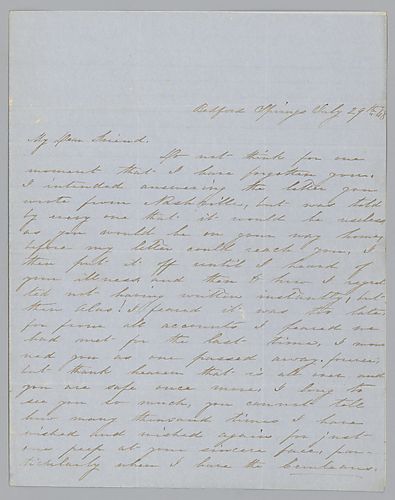 Bedford Springs July 29th 48
My Dear Friend.
Do not think for one
moment that I have forgotten you.
I intended answering the letter you
wrote from Nashville, but was told
by every one that it would be useless
as you would be on your way home,
before my letter could reach you, I
then put it off until I heard of
your illness, and then O how I regret
ted not having written instantly, but
then alas! I feared it was too late,
for from all accounts I feared we
had met for the last time, I mour
ned you as one passed away forever,
but thank heaven that is all over and
you are safe once more, I long to
see you so much, you cannot tell
how many thousand times I have
wished and wished again for just
one peep at your sincere face, par
ticularly when I have the